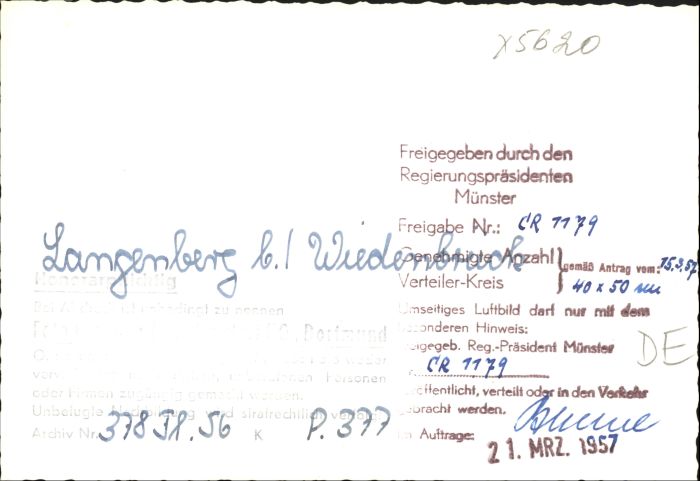 x5620
Freigegeben durch den
Regierungspräsidenten
Münster
Freigabe Nr.: CR 1179
Langenberg b./ Wiedenbrück
Genehmigte Anzahl } gemäß Antrag vom: 15.3.57
Verteiler-Kreis 40 x 50 cm
Honorarpflichtig
Bei Abdruck ist unbedingt zu nennen
Dortmund
Umseitiges Luftbild darf nur mit dem
besonderen Hinweis:
Freigegeb. Reg.-Präsident Münster
CR 1179
DE
Personen
oder Firmen zugängig gemacht werden.
Unbefugte wird strafrechtlich verfolgt
Archiv Nr. 378 II. 56 K P. 377
veröffentlicht, verteilt oder in den Verkehr
gebracht werden.
Im Auftrage:
21. MRZ. 1957